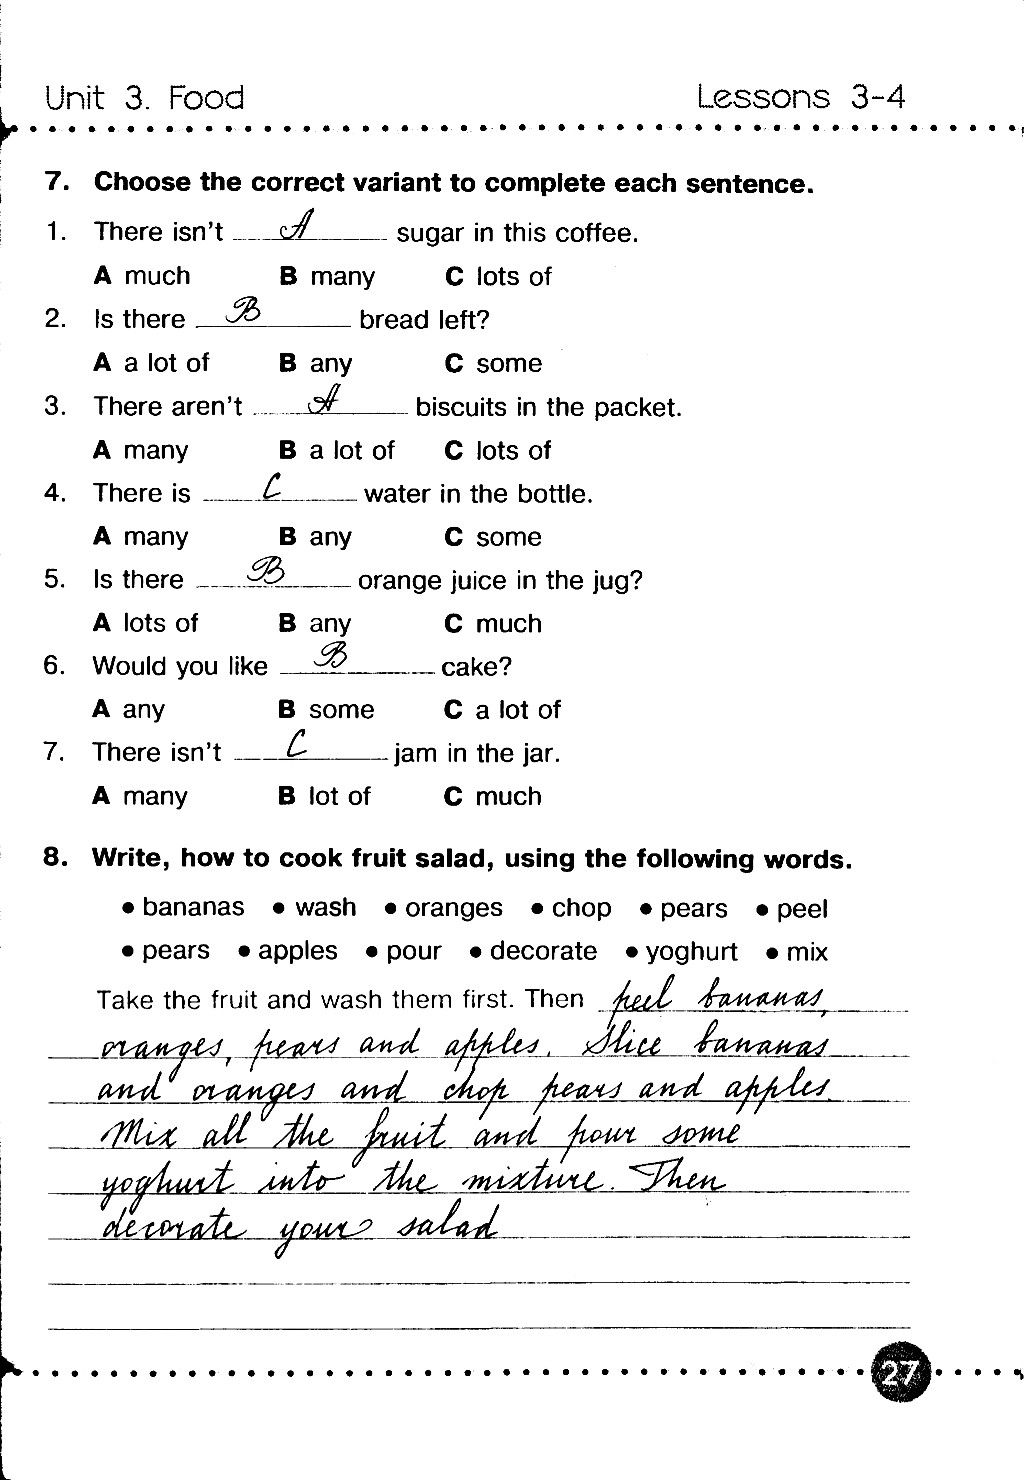 Unit 3. Food Lessons 3-4
7. Choose the correct variant to complete each sentence.
1. There isn't A sugar in this coffee.
A much B many C lots of
2. Is there B bread left?
A a lot of B any C some
3. There aren't A biscuits in the packet.
A many B a lot of C lots of
4. There is C water in the bottle.
A many B any C some
5. Is there B orange juice in the jug?
A lots of B any C much
6. Would you like B cake?
A any B some C a lot of
7. There isn't C jam in the jar.
A many B lot of C much
8. Write, how to cook fruit salad, using the following words.
• bananas • wash • oranges • chop • pears • peel
• pears • apples • pour • decorate • yoghurt • mix
Take the fruit and wash them first. Then peel bananas,
oranges, pears and apples. Slice bananas
and oranges and chop pears and apples.
Mix all the fruit and pour some
yoghurt into the mixture. Then
decorate your salad
27